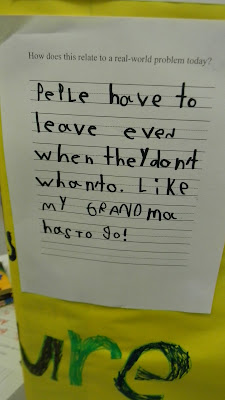 How does this relate to a real-world problem today?
PePLe have to
leave even
when they don't
whanto. Like
my GRANDMa
has to go!
ure